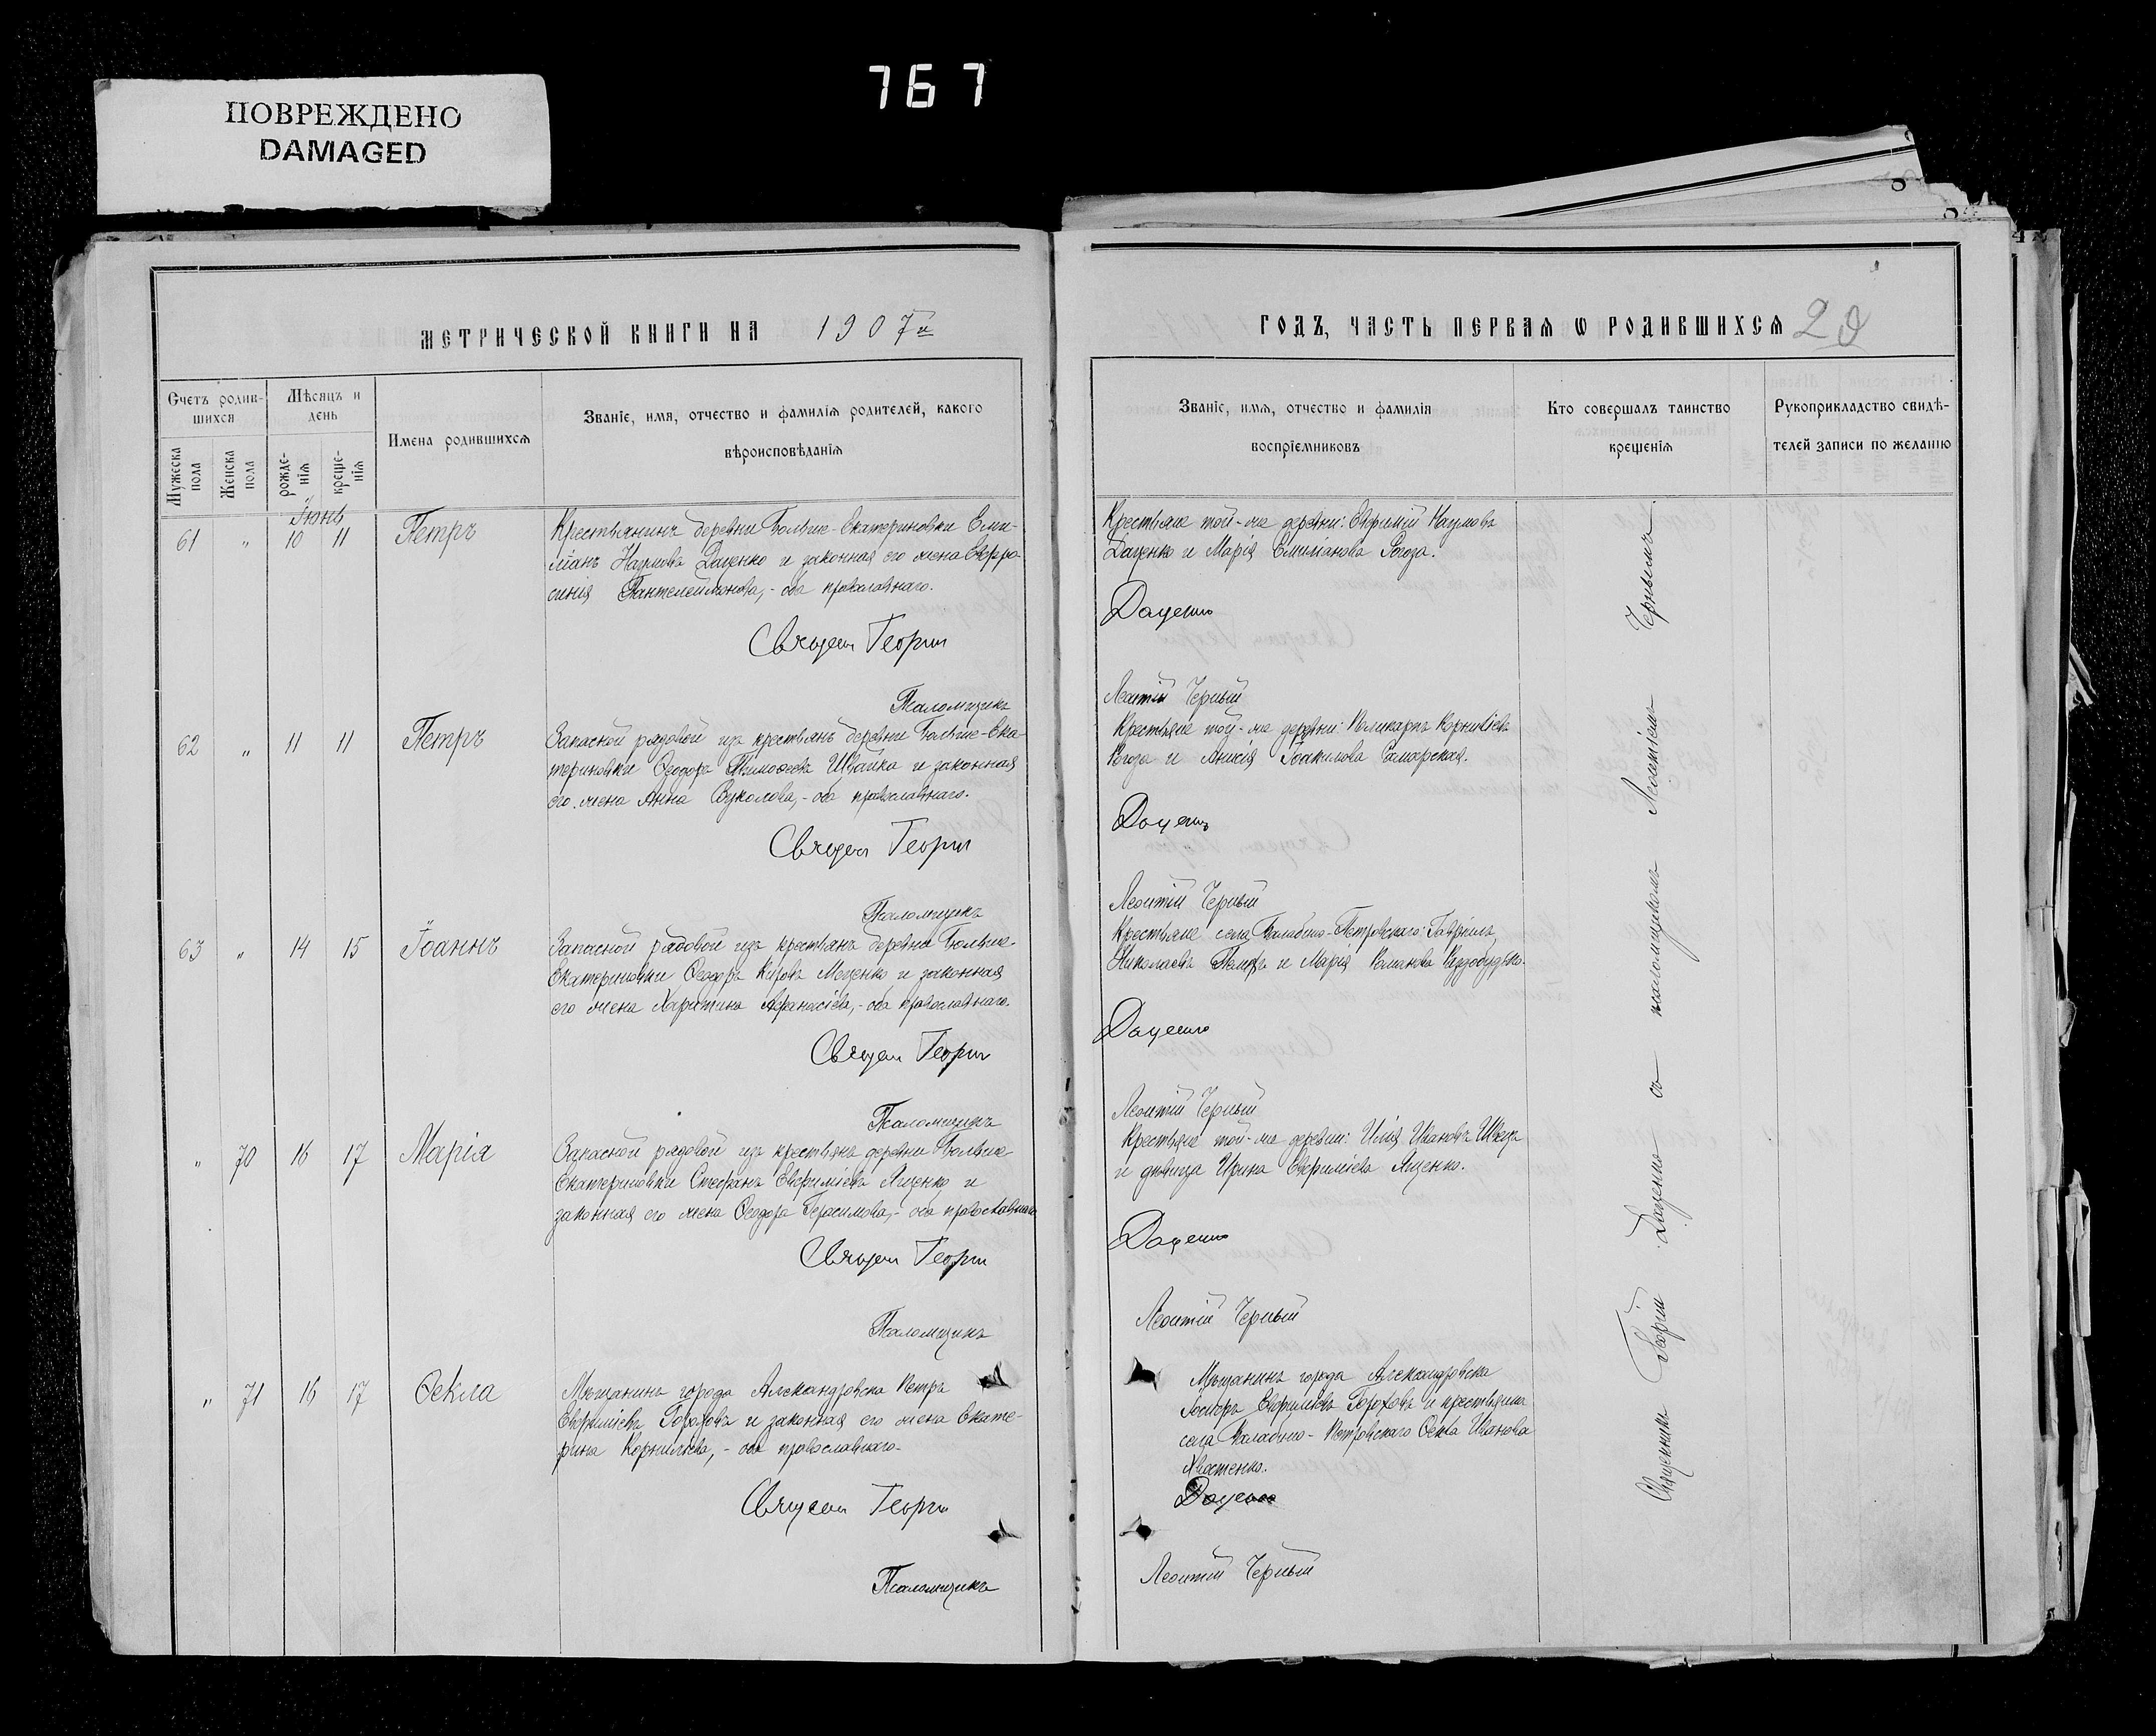 767
ПОВРЕЖДЕНО
DAMAGED
МЕТРИЧЕСКОЙ КНИГИ НА 1907й
ГОДЪ, ЧАСТЬ ПЕРВАѦ Ѡ РОДИВШИХСѦ
Счетъ родив-
шихся
Мѣсяцъ и
день
Имена родившихсѧ
Званіе, имя, отчество и фамилія родителей, какого
вѣроисповѣданія
Мужеска
пола
Женска
пола
рожде-
нія
креще-
нія
Званіе, имя, отчество и фамилія
воспріемниковъ
Кто совершалъ таинство
крещенія
Рукоприкладство свидѣ-
телей записи по желанію
Іюнь
61 " 10 11 Петръ
Крестьянинъ деревни Больше-Екатериновки Еми-
ліанъ Наумовъ Даценко и законная его жена Евфро-
синія Пантелеймонова,- оба православнаго.
Священ Георгій
Псаломщикъ
Крестьяне той-же деревни: Евфимій Наумовъ
Даценко и Марія Емиліанова Рогоза.
Даценко
Леонтій Черный
62 " 11 11 Петръ
Запасной рядовой изъ крестьянъ деревни Больше-Ека-
териновки Ѳеодоръ Тимоѳеевъ Швайка и законная
его жена Анна Вуколова,- оба православнаго.
Священ Георгій
Псаломщикъ
Крестьяне той-же деревни: Поликарпъ Корниліевъ
Рогоза и Анисія Іоакимова Самарская.
Даценко
Леонтій Черный
63 " 14 15 Іоаннъ
Запасной рядовой изъ крестьянъ деревни Больше-
Екатериновки Ѳеодоръ Кировъ Меценко и законная
его жена Харитина Афанасіева,- оба православнаго.
Священ Георгій
Псаломщикъ
Крестьяне села Балабино-Петровскаго: Гавріилъ
Николаевъ и Марія Романова
Даценко
Леонтій Черный
" 70 16 17 Марія
Запасной рядовой изъ крестьянъ деревни Больше-
Екатериновки Стефанъ Евфиміевъ Яценко и
законная его жена Ѳеодора Герасимова,- оба православнаго
Священ Георгій
Псаломщикъ
Крестьяне той-же деревни: Илія Ивановъ Швецъ
и дѣвица Ирина Евфиміева Яценко.
Даценко
Леонтій Черный
" 71 16 17 Ѳекла
Мѣщанинъ города Александровска Петръ
Евфиміевъ Гороховъ и законная его жена Екате-
рина Корниліева,- оба православнаго.
Священ Георгій
Псаломщикъ
Мѣщанинъ города Александровска
Іосифъ Евфиміевъ Гороховъ и крестьянка
села Балабино-Петровскаго Ѳекла Иванова
Даценко
Леонтій Черный
Священникъ Георгій Даценко съ псаломщикомъ Леонтіемъ Чернымъ